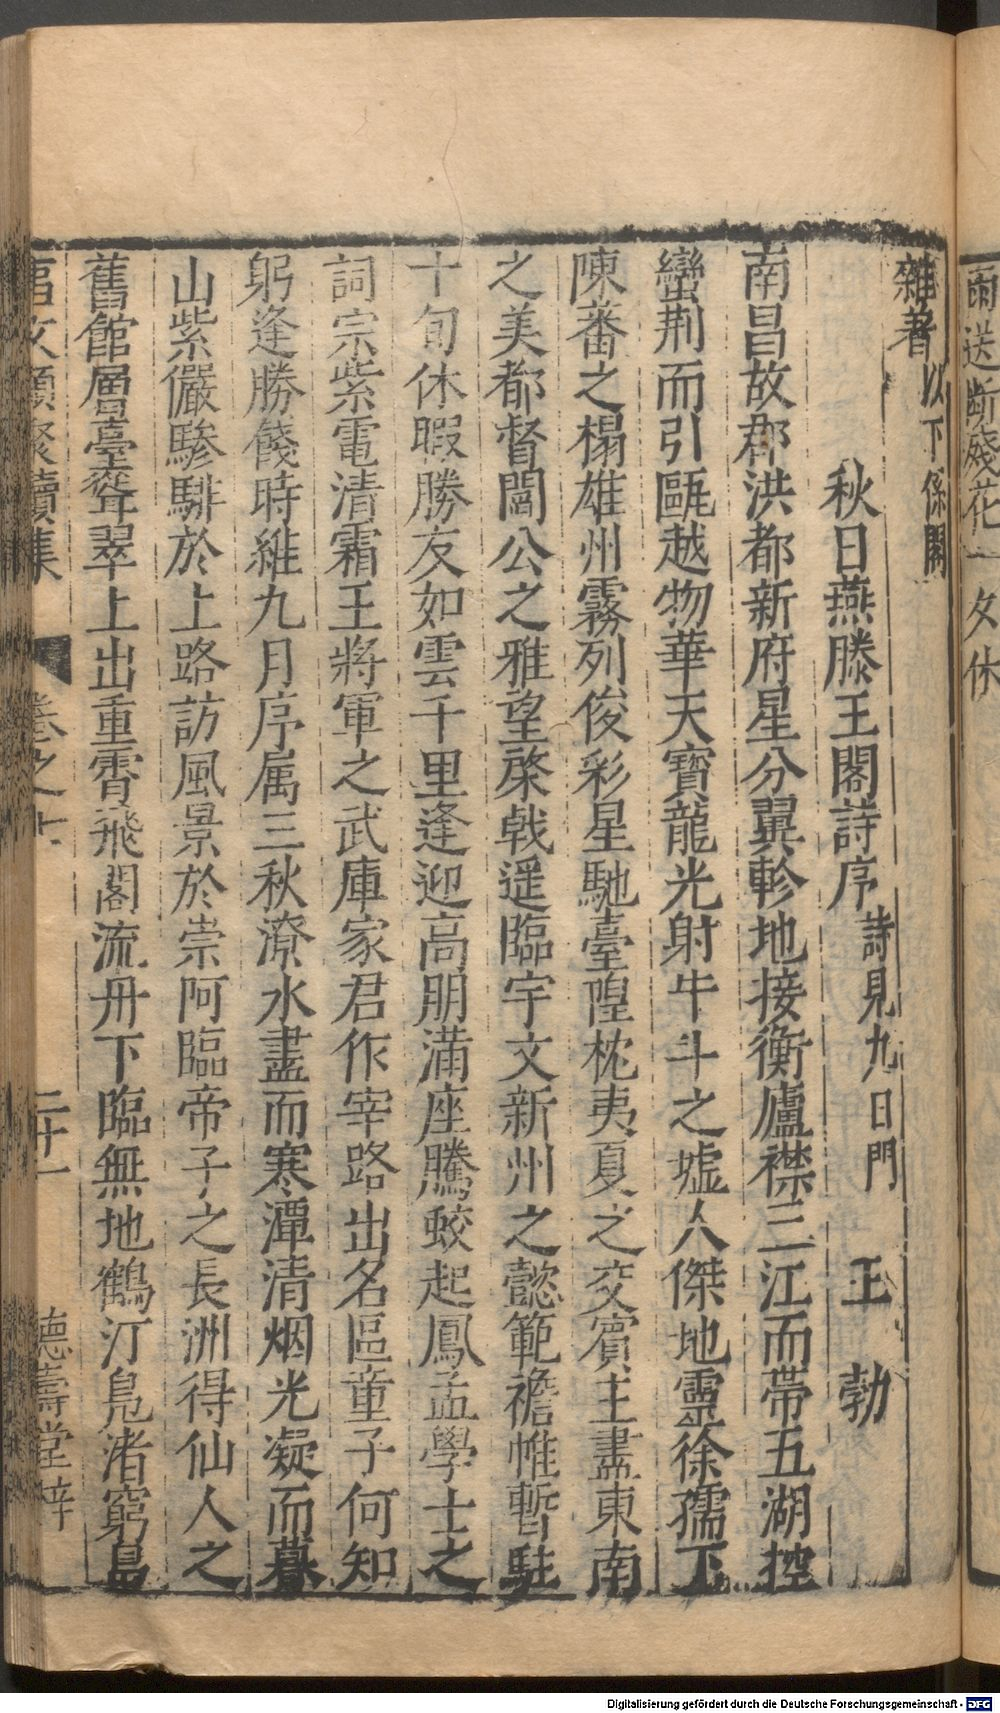 雨送断殘花一夕休
雜著以下係閣
秋日燕滕王閣詩序詩見九日門 王 勃
南昌故郡洪都新府星分翼軫地接衡廬襟三江而帶五湖控
蠻荆而引甌越物華天寶龍光射牛斗之墟人傑地靈徐孺下
陳蕃之榻雄州霧列俊彩星馳臺隍枕夷夏之交賓主盡東南
之美都督閻公之雅望棨戟遥臨宇文新州之懿範襜帷暫駐
十旬休暇勝友如雲千里逢迎高朋滿座騰蛟起鳳孟學士之
詞宗紫電清霜王將軍之武庫家君作宰路出名區童子何知
躬逢勝餞時維九月序属三秋潦水盡而寒潭清烟光凝而暮
山紫儼驂騑於上路訪風景於崇阿臨帝子之長洲得仙人之
舊館層臺聳翠上出重霄飛閣流丹下臨無地鶴汀鳧渚窮島
事文類聚續集 卷之十 二十一 德壽堂梓
Digitalisierung gefördert durch die Deutsche Forschungsgemeinschaft - DFG